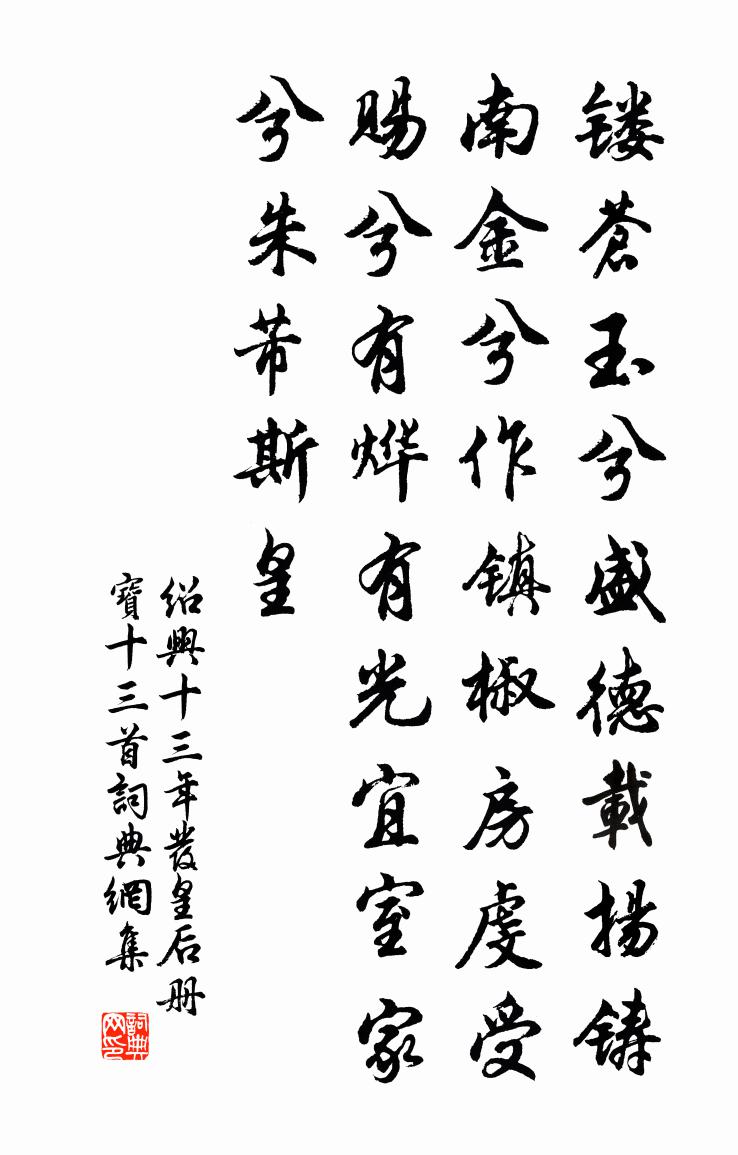 镂苍玉兮盛德載揚铸
南金兮作镇椒房虔受
賜兮有烨有光宜室家
兮朱芾斯皇
绍興十三年發皇后册
寶十三首詞典網集
詞典网印